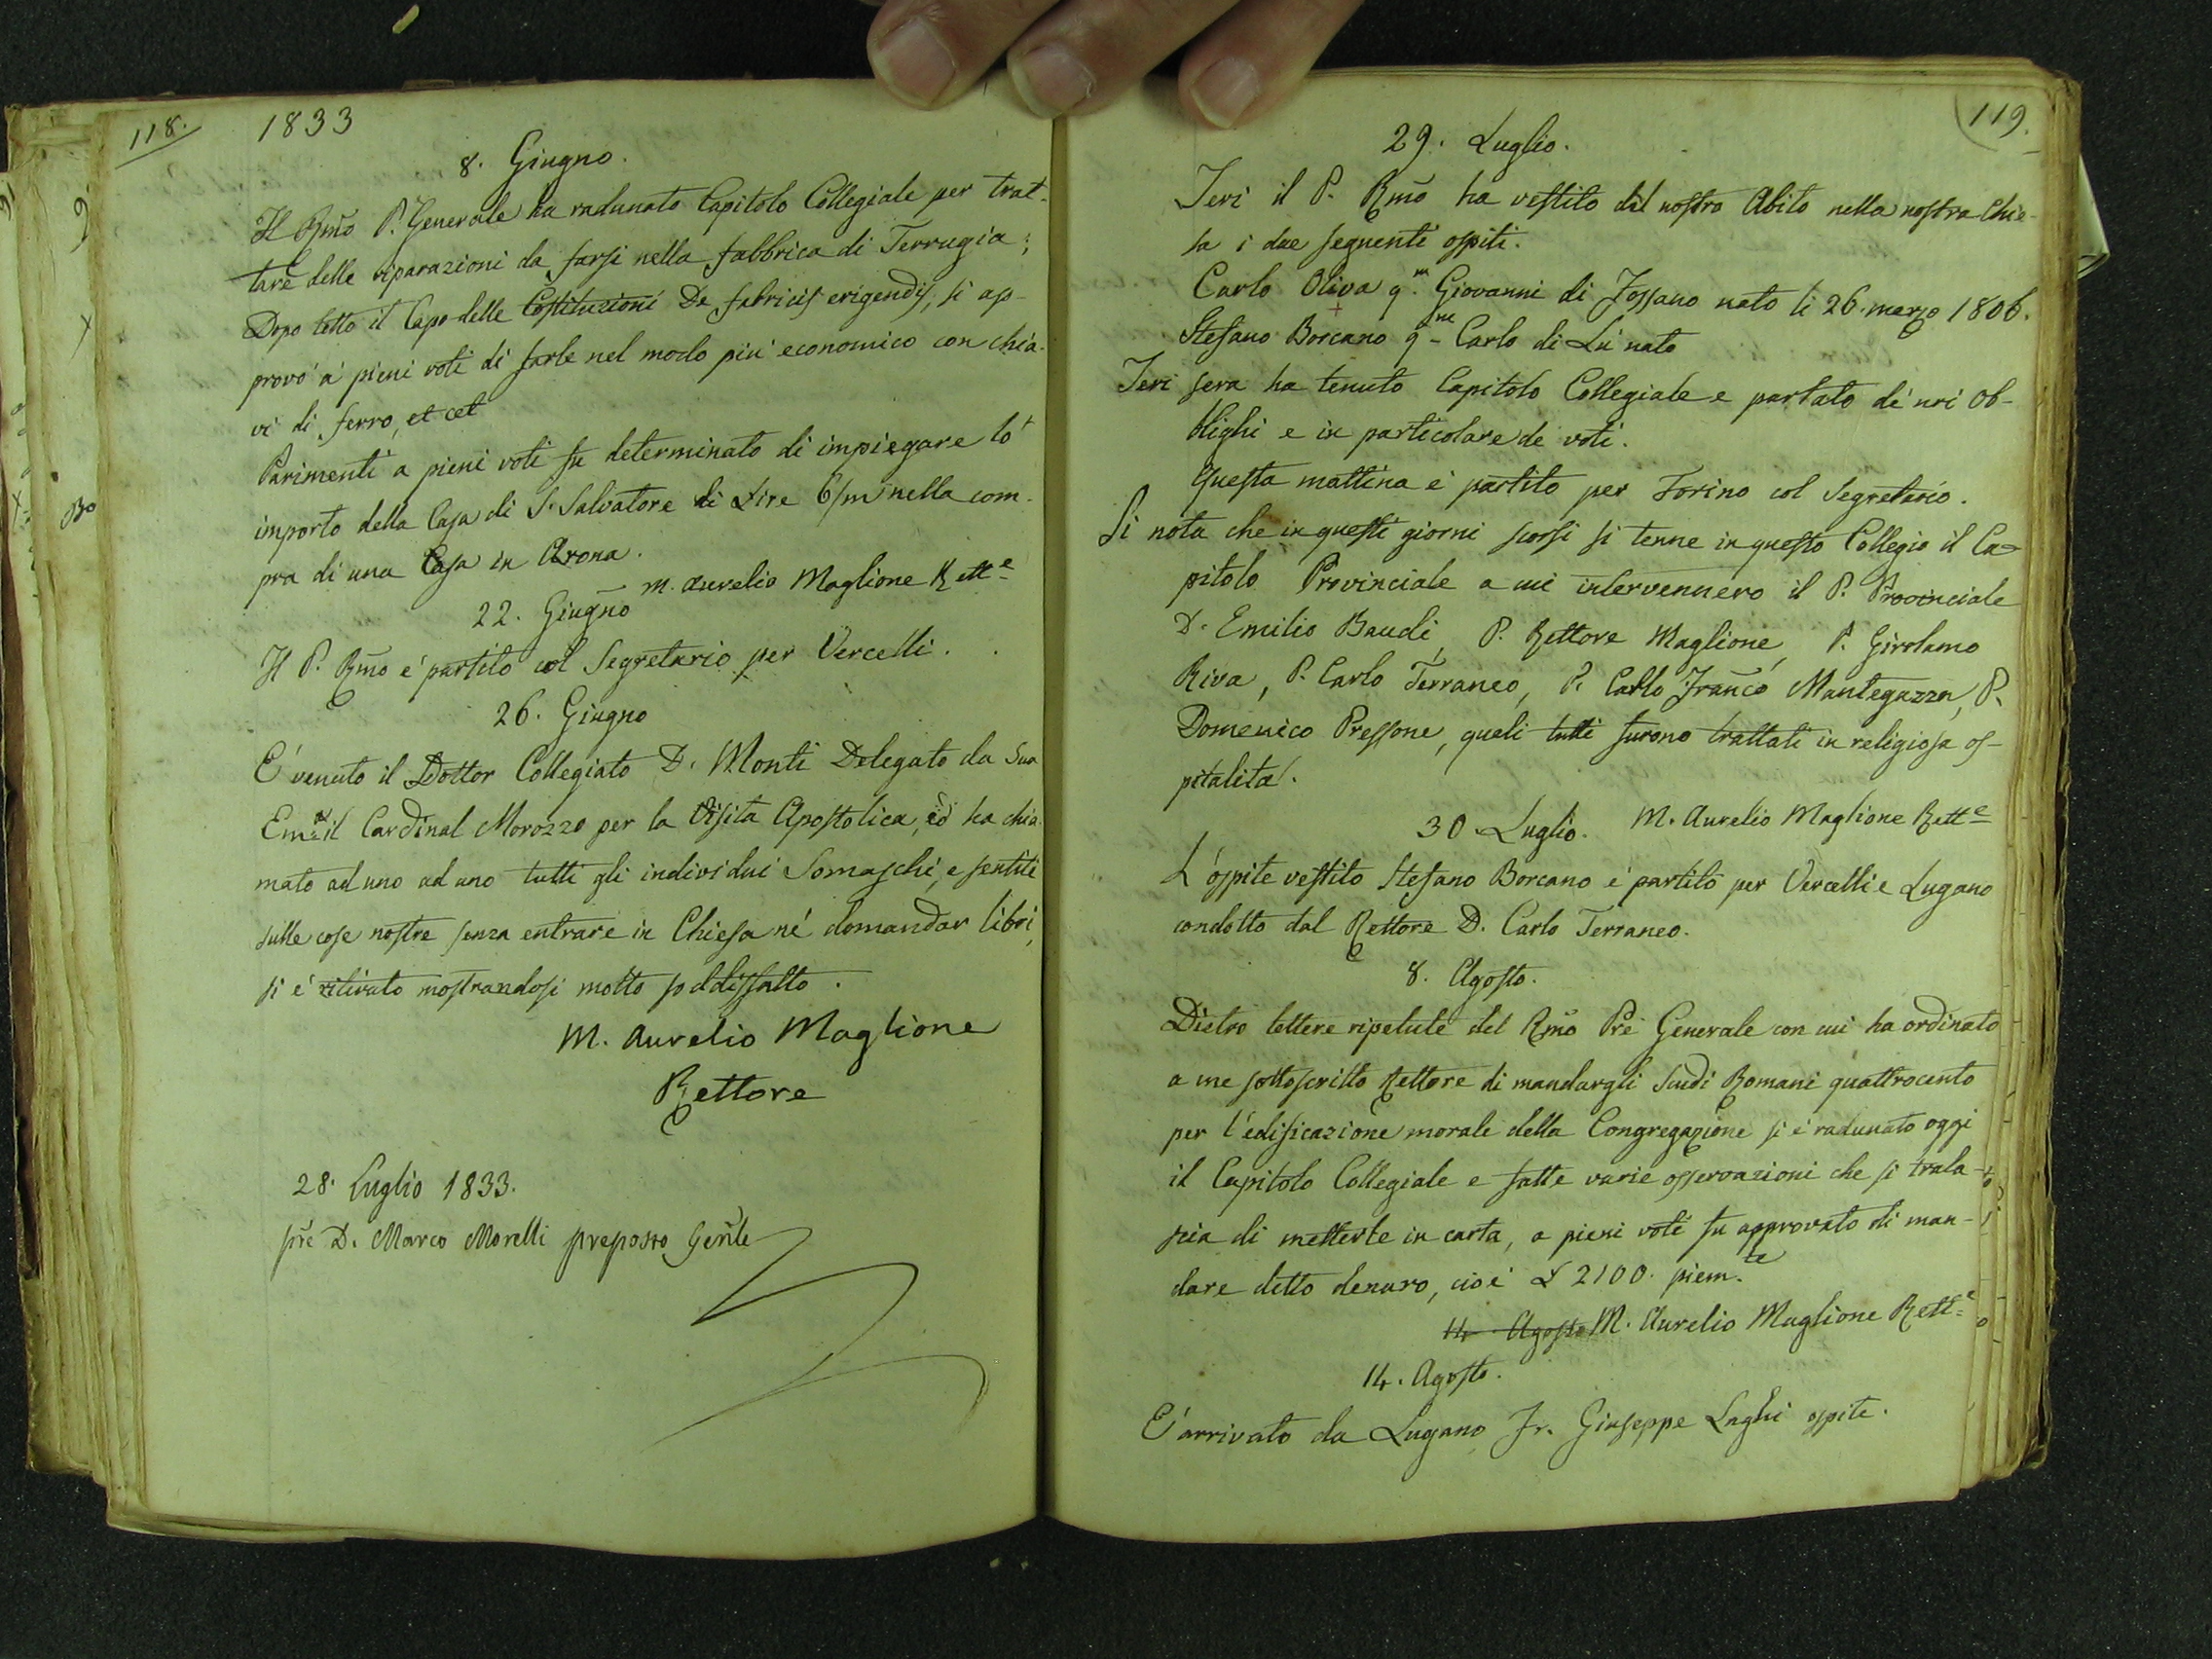 118.
1833
8. Giugno.
Il Rmo P. Generale ha radunato Capitolo Collegiale per trat-
tare delle riparazioni da farsi nella fabbrica di Terrugia;
Dopo letto il Capo delle Costituzioni De fabricis erigendis, si ap-
provò a' pieni voti di farle nel modo più economico con chia-
vi di ferro, et cet
Parimenti a pieni voti fu determinato di impiegare lo
importo della Casa di S. Salvatore di Lire 6/m nella com-
pra di una Casa in Arona.
M. Aurelio Maglione Rette
22. Giugno
Il P. Rmo è partito col Segretario per Vercelli.
26. Giugno
È venuto il Dottor Collegiato D. Monti Delegato da Sua
Emza il Cardinal Morozzo per la Visita Apostolica, ed ha chia-
mato ad uno ad uno tutti gli individui Somaschi, e sentiti
sulle cose nostre senza entrare in Chiesa né domandar libri,
si è ritirato mostrandosi molto soddisfatto.
M. Aurelio Maglione
Rettore
28. Luglio 1833.
pre D. Marco Morelli preposto Genle
119.
29. Luglio.
Jeri il P. Rmo ha vestito del nostro Abito nella nostra Chie-
sa i due seguenti ospiti.
Carlo Oliva qm Giovanni di Fossano nato li 26. marzo 1806.
Stefano Borcano qm Carlo di Lù nato
Jeri sera ha tenuto Capitolo Collegiale e parlato de' nri Ob-
blighi e in particolare de voti.
Questa mattina è partito per Torino col Segretario.
Si nota che in questi giorni scorsi si tenne in questo Collegio il Ca-
pitolo Provinciale a cui intervennero il P. Provinciale
D. Emilio Baudi, P. Rettore Maglione, P. Girolamo
Riva, P. Carlo Terraneo, P. Carlo Franco Mantegazza, P.
Domenico Pressone, quali tutti furono trattati in religiosa os-
pitalità.
M. Aurelio Maglione Rette
30. Luglio.
L'ospite vestito Stefano Borcano è partito per Vercelli e Lugano
condotto dal Rettore D. Carlo Terraneo.
8. Agosto.
Dietro lettere ripetute del Rmo Pre Generale con cui ha ordinato
a me sottoscritto Rettore di mandargli Scudi Romani quattrocento
per l'edificazione morale della Congregazione si è radunato oggi
il Capitolo Collegiale e fatte varie osservazioni che si trala-
scia di metterle in carta, a pieni voti fu approvato di man-
dare detto denaro, cioè £ 2100. piem.te
14 Agosto M. Aurelio Maglione Rette
14. Agosto.
È arrivato da Lugano Fr. Giuseppe Laghi ospite.